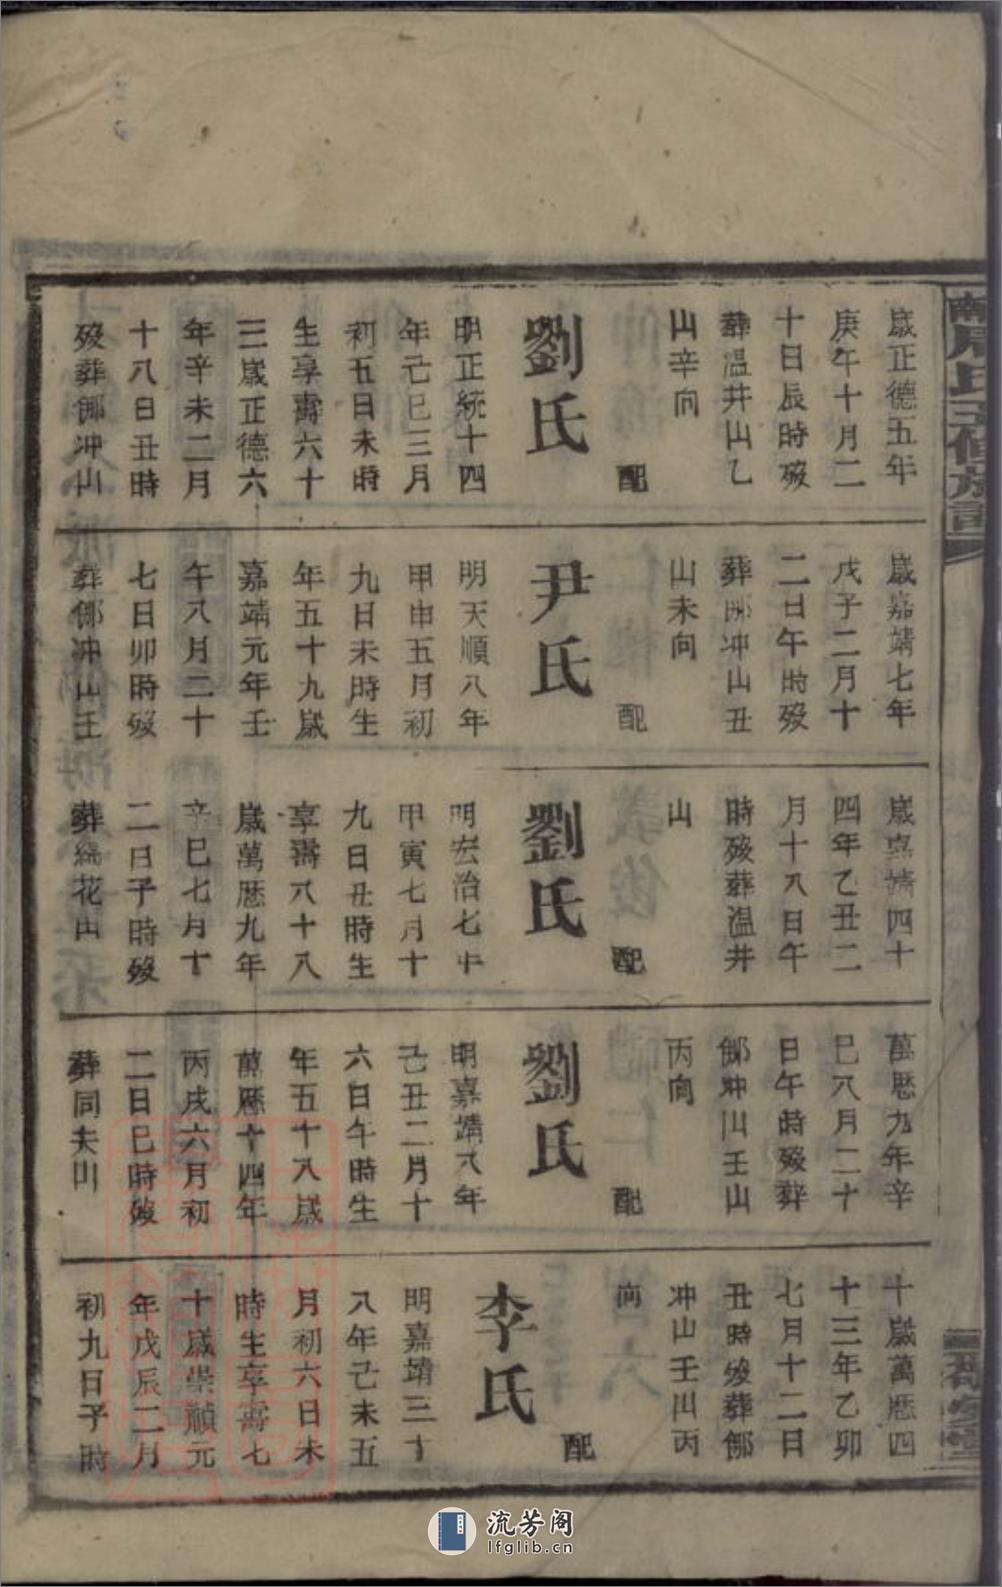 歲正德五年
庚午十月二
十日辰時歿
葬温井山乙
山辛向
配
劉氏
明正統十四
年己巳三月
初五日未時
生享壽六十
三歲正德六
年辛未二月
十八日丑時
歿葬鄉冲山
歲嘉靖七年
戊子二月十
二日午時歿
葬鄉冲山丑
山未向
配
尹氏
明天順八年
甲申五月初
九日未時生
年五十九歲
嘉靖元年壬
午八月二十
七日卯時歿
葬鄉冲山壬
歲嘉靖四十
四年乙丑二
月十八日午
時歿葬温井
山
配
劉氏
明宏治七年
甲寅七月十
九日丑時生
享壽八十八
歲萬厯九年
辛巳七月十
二日子時歿
葬綉花山
萬厯九年辛
巳八月二十
日午時歿葬
鄉冲山壬山
丙向
配
劉氏
明嘉靖八年
己丑二月十
六日午時生
年五十八歲
萬厯十四年
丙戌六月初
二日巳時歿
葬同夫山
十歲萬厯四
十三年乙卯
七月十二日
丑時歿葬鄉
冲山壬山丙
向
配
李氏
明嘉靖三十
八年己未五
月初六日未
時生享壽七
十歲崇禎元
年戊辰二月
初九日子時
流芳阁
lfglib.cn